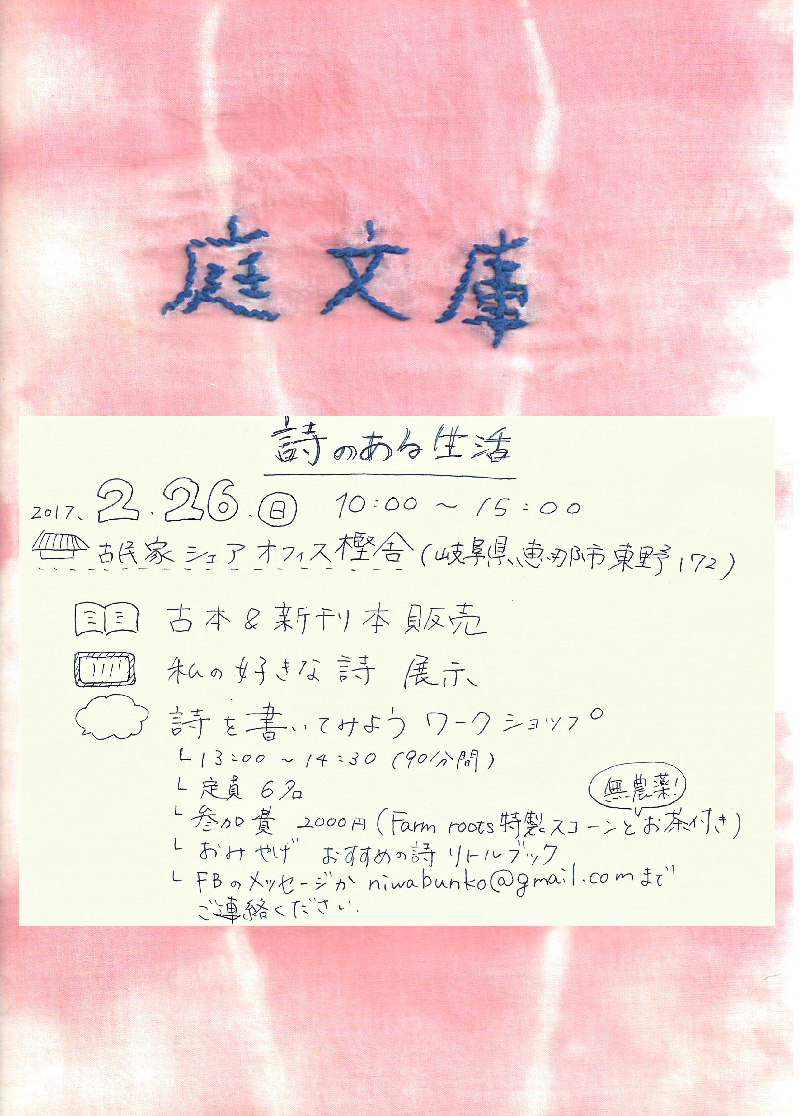 庭文庫
詩のある生活
2017、2.26.日 10:00 〜 15:00
古民家シェアオフィス樫舎(岐阜県、恵那市東野172)
古本&新刊本販売
私の好きな詩 展示、
詩を書いてみよう ワークショップ
└ 13:00 〜 14:30 (90分間)
└ 定員 6名
無農薬!
└ 参加費 2000円(Farm roots特製スコーンとお茶付き)
└ おみやげ おすすめの詩リトルブック
└ FBのメッセージか niwabunko@gmail.comまで
ご連絡ください.